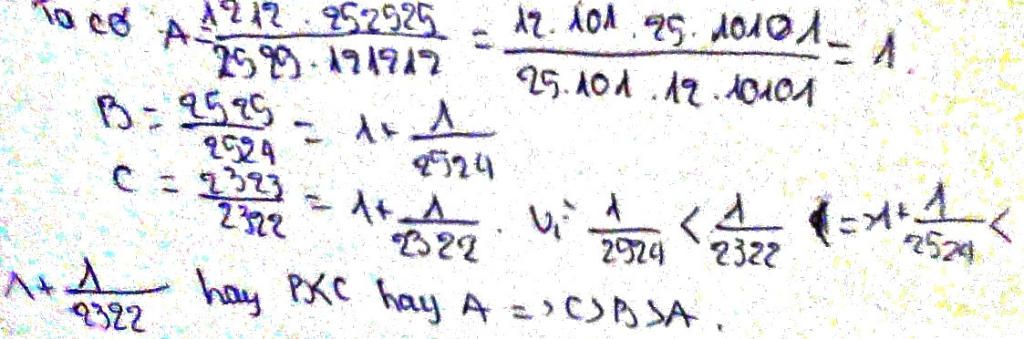 Ta có A = 1212 . 252525 / 2525 . 121212 = 12 . 101 . 25 . 10101 / 25 . 101 . 12 . 10101 = 1.
B = 2525 / 2524 = 1 + 1 / 2524
C = 2323 / 2322 = 1 + 1 / 2322 . Vì 1 / 2524 < 1 / 2322 => 1 + 1 / 2524 <
1 + 1 / 2322 hay B<C hay A => C>B>A.